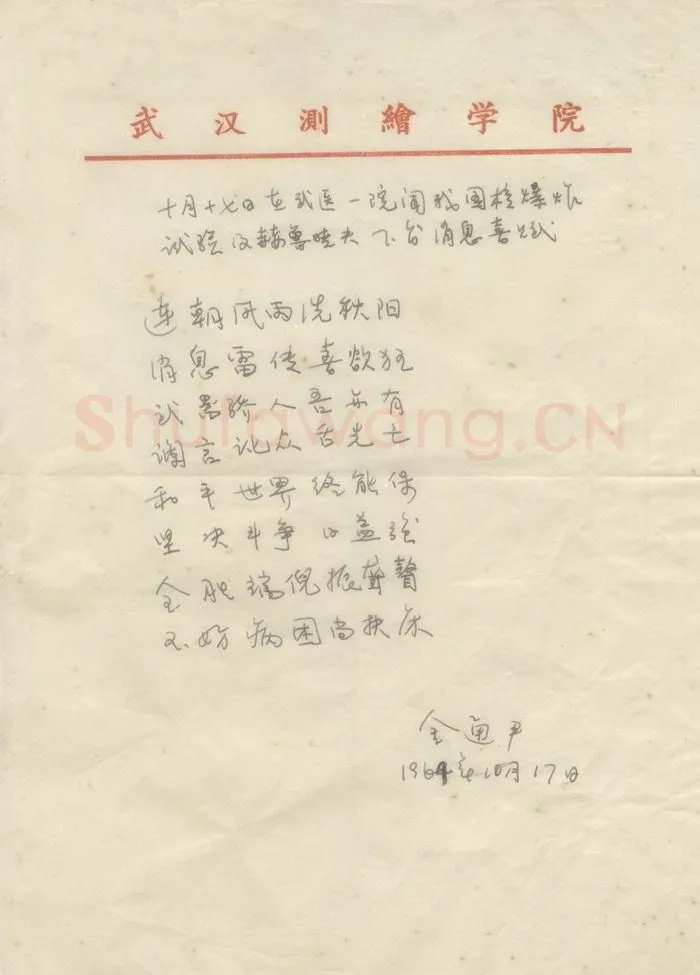 武汉測繪学院
十月十七日在武医一院闻我国核爆炸
试验及赫鲁晓夫下台消息喜赋
连朝风雨洗秋阳
消息雷传喜欲狂
武器骄人吾亦有
谰言讹众舌先亡
和平世界终能保
坚决斗争日益强
全肥端倪振聋瞽
不妨病困尚扶床
金通尹
1964年10月17日
Shufawang.CN